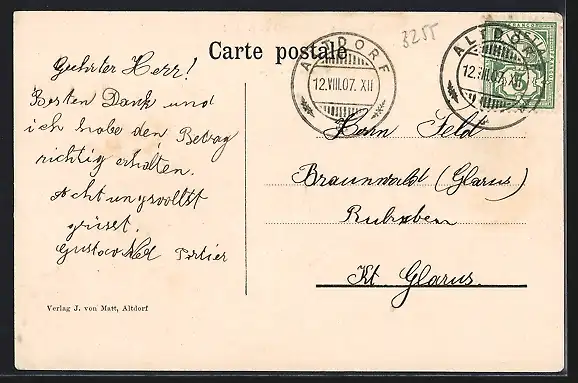 Carte postale
3255
ALTDORF
12.VIII.07. XII
ALTDORF
12.VIII.07. XII
Geehrter Herr!
Besten Dank und
ich habe den Betrag
richtig erhalten.
Achtungsvollst
grüset.
Gustav Portier
Feldt
Braunwald (Glarus)
Kt. Glarus.
Verlag J. von Matt, Altdorf